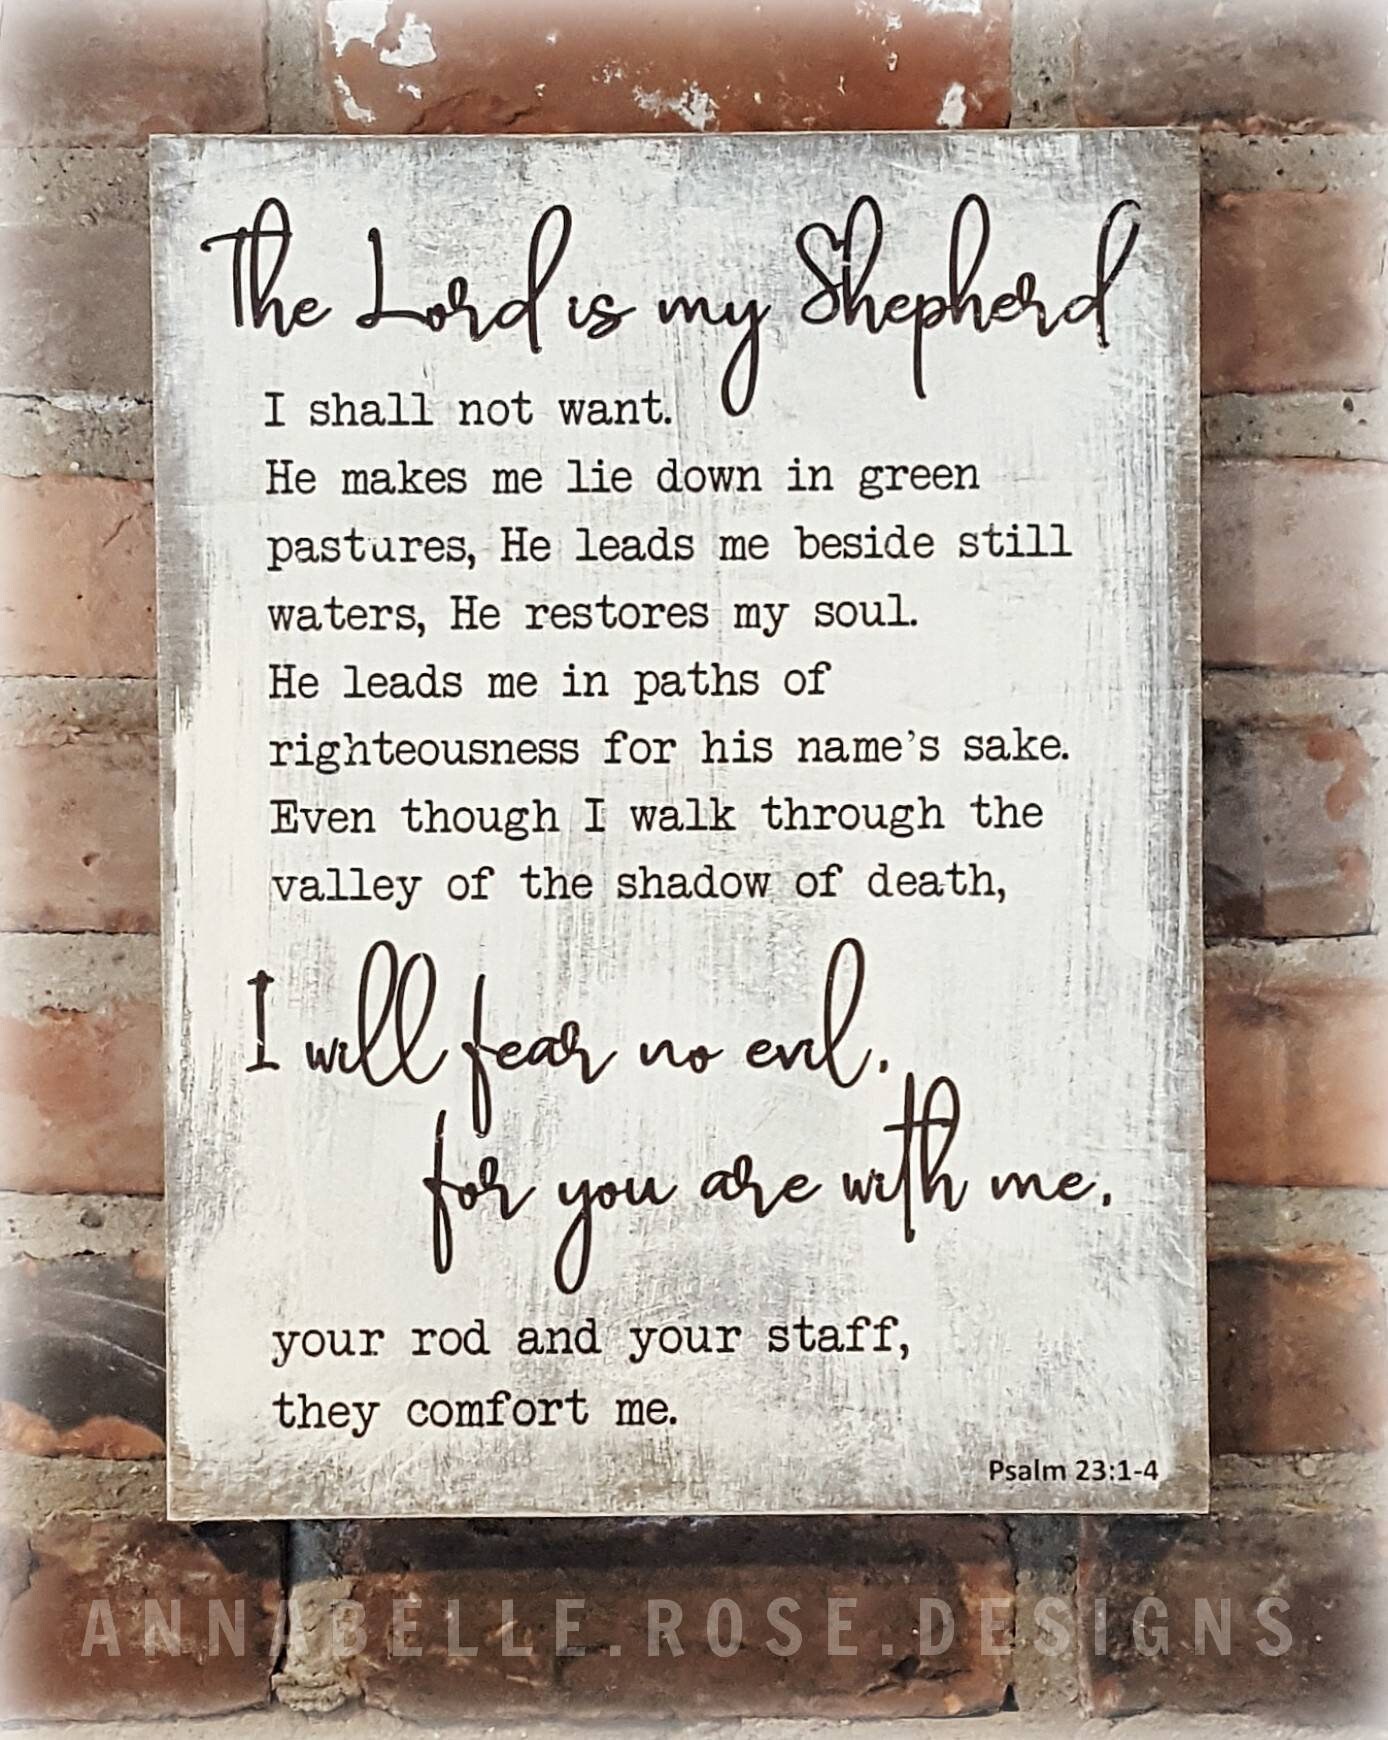 The Lord is my Shepherd
I shall not want.
He makes me lie down in green
pastures, He leads me beside still
waters, He restores my soul.
He leads me in paths of
righteousness for his name's sake.
Even though I walk through the
valley of the shadow of death,
I will fear no evil.
for you are with me.
your rod and your staff,
they comfort me.
Psalm 23:1-4
ANNABELLE.ROSE.DESIGNS